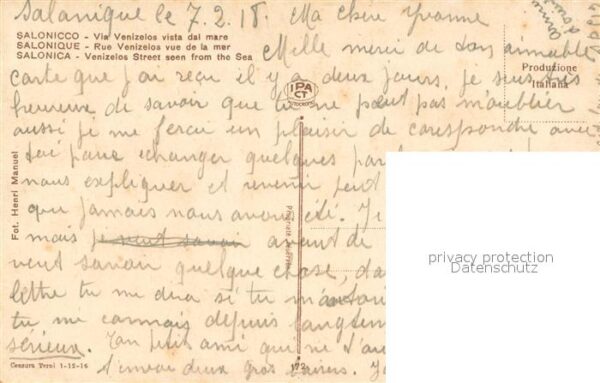 Salonique le 7.2.18. Ma chère Yvonne
SALONICCO - Via Venizelos vista dal mare
SALONIQUE - Rue Venizelos vue de la mer
SALONICA - Venizelos Street seen from the Sea
Mille merci de ton aimable
Produzione
Italiana
carte que j'ai reçu il y a deux jours, je suis très
IPA
CT
heureuse de savoir que tu ne peut pas m'oublier
aussi je me ferai un plaisir de corespondre avec
toi pour changer quelques
nous expliquer et revenir peut
que jamais nous avons été. Je
mais avant de
veut savoir quelque chose, da
lettre tu me dira si tu
tu me connais depuis longtem
sérieux. Ton petit ami qui ne t'au
t'envoi deux gros baisers.
Fot. Henri Manuel
172
Censura Terni 1-12-16
privacy protection
Datenschutz